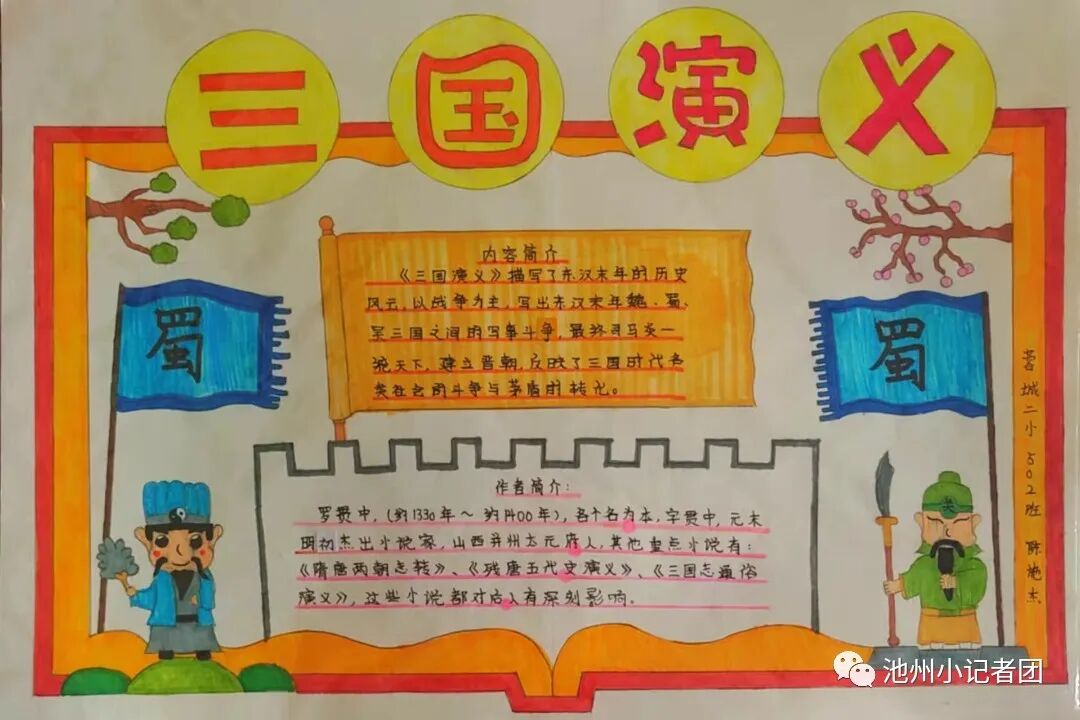 三国演义
内容简介
《三国演义》描写了东汉末年的历史
风云,以战争为主,写出东汉末年魏、蜀、
吴三国之间的军事斗争,最终司马炎一
统天下,建立晋朝,反映了三国时代各
类社会的斗争与茅盾的转化。
蜀
蜀
作者简介:
罗贯中,(约1330年～约1400年),名本,字贯中,元末
明初杰出小说家,山西并州太原府人,其他重点小说有:
《隋唐两朝志转》、《残唐五代史演义》、《三国志通俗
演义》,这些小说都对后人有深刻影响。
蓉城二小 502班
池州小记者团